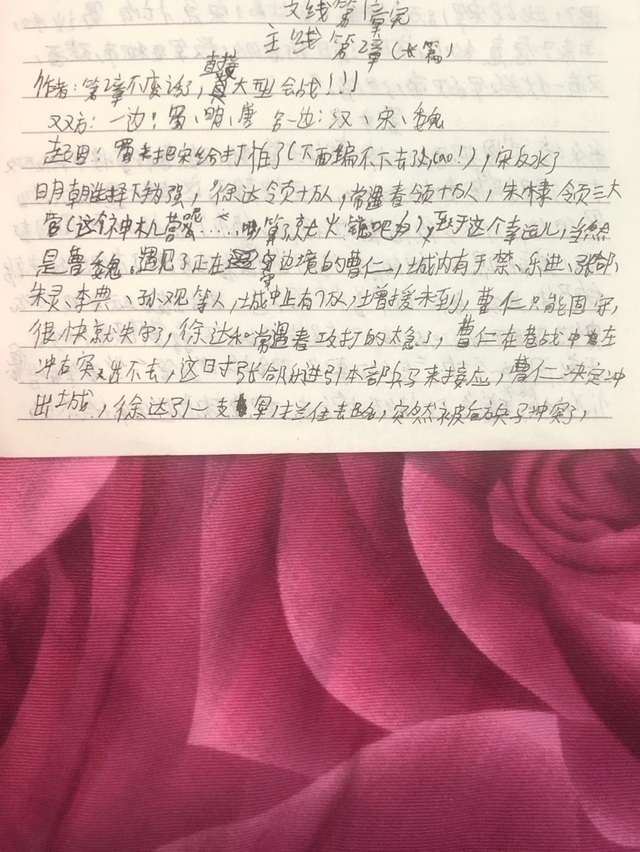 支线第1章完
主线 第2章(长篇)
直接
作者:第2章不废话了,大型会战!!!
双方:一边:蜀、明、唐 另一边:汉、宋、魏
起因:蜀把宋给打怕了(下面编不下去了,cao!),宋反水了
明朝选择下为强,徐达领十万人,常遇春领十万人,朱棣领三大
营(这个神机营呢……算了就火铳吧),至于这个幸运儿,当然
是曹魏。遇见了正在守边境的曹仁,城内有于禁、乐进、张郃、
朱灵、李典、孙观等人,城中止有7万人,增援未到,曹仁只能固守,
很快就失守了,徐达和常遇春攻打的太急了,曹仁在巷战中左
冲右突出不去,这日寸张郃乐进引本部兵来接应,曹仁决定冲
出土城,徐达引一支军拦住去路,突然被后方兵冲散了,